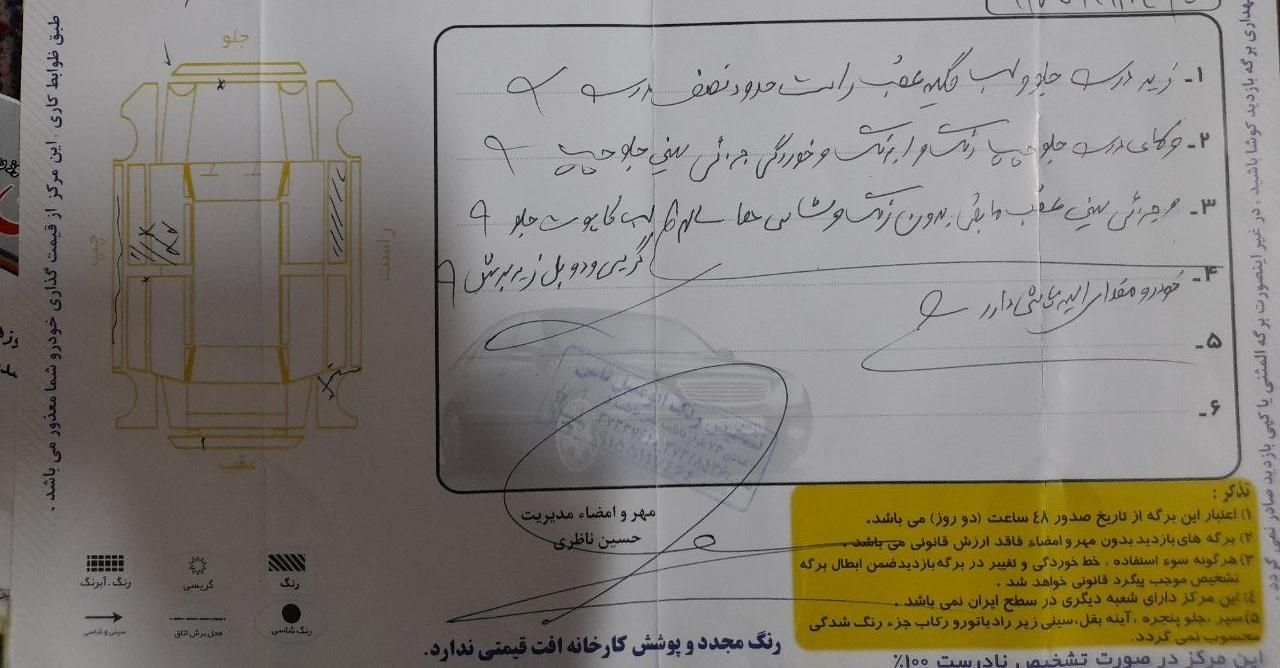 جلو
راست
چپ
عقب
۱ـ زیر درب جلو و لب گلگیر عقب راست حدود نصف درب
۲ـ رکاب درب جلو چپ رنگ و آبرنگ و خوردگی جزئی سینی جلو چپ
۳ـ جزئی سینی عقب مابقی بدون رنگ و شاسی ها سالم لب کاپوت جلو
۴ـ گریسی و دوبل زیر برش
خودرو مقداری دارد
۵ـ
۶ـ
مهر و امضاء مدیریت
حسین ناظری
رنگ
گریسی
رنگ ـ آبرنگ
رنگ شاسی
محل برش اتاق
سینی و شاسی
تذکر :
۱) اعتبار این برگه از تاریخ صدور ٤٨ ساعت (دو روز) می باشد.
۲) برگه های بازدید بدون مهر و امضاء فاقد ارزش قانونی می باشد .
۳) هرگونه سوء استفاده ، خط خوردگی و تغییر در برگه بازدید ضمن ابطال برگه
تشخیص موجب پیگرد قانونی خواهد شد .
٤) این مرکز دارای شعبه دیگری در سطح ایران نمی باشد .
۵) سپر ، جلو پنجره ، آینه بغل، سینی زیر رادیاتور و رکاب جزء رنگ شدگی
محسوب نمی گردد.
رنگ مجدد و پوشش کارخانه افت قیمتی ندارد.
این مرکز در صورت تشخیص نادرست ۱۰۰٪
طبق ظوابط کاری این مرکز از قیمت گذاری خودرو شما معذور می باشد .
نگهداری برگه بازدید کوشا باشید . در غیر اینصورت برگه المثنی یا کپی بازدید صادر نمی گردد .